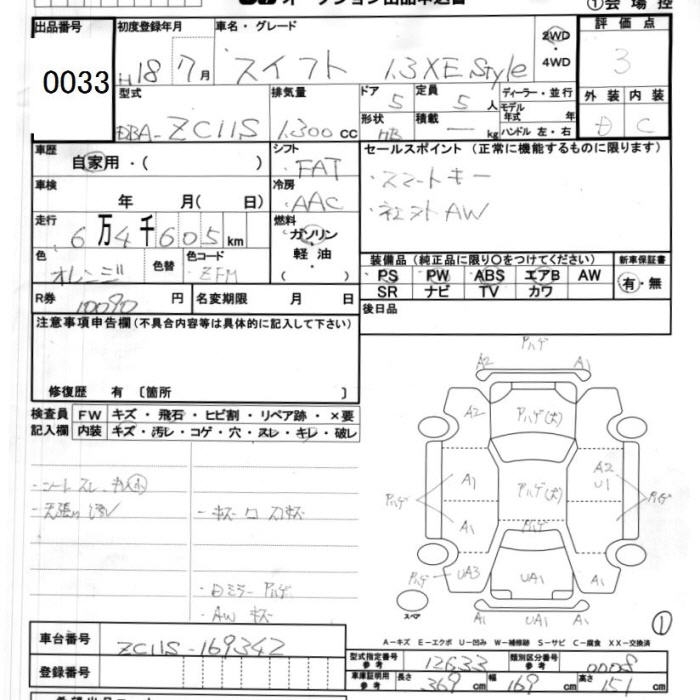 オークション出品申込書 ①会場控
出品番号 初度登録年月 車名・グレード 評価点
0033 H18 7月 スイフト 1.3XE Style 2WD・4WD 3
型式 排気量 ドア 定員 ディーラー・並行 外装 内装
DBA-ZC11S 1.300cc 5 5人 モデル年式 年 D C
形状 積載 ハンドル 左・右
HB ― kg
車歴 シフト セールスポイント(正常に機能するものに限ります)
自家用・( ) FAT ・スマートキー
車検 冷房 ・社外AW
年 月( 日) AAC
走行 燃料
6万4千605km ガソリン・軽油( )
色 色替 色コード 装備品(純正品に限り○をつけてください) 新車保証書
オレンジ ZFM PS PW ABS エアB AW 有・無
SR ナビ TV カワ
R券 10090円 名変期限 月 日 後日品
注意事項申告欄(不具合内容等は具体的に記入して下さい)
修復歴 有 〔箇所 〕
検査員 FW キズ・飛石・ヒビ割・リペア跡・×要
記入欄 内装 キズ・汚レ・コゲ・穴・スレ・キレ・破レ
・シートスレ
・天張り汚レ
・日ミラー ハゲ
・AW キズ
ハゲ
A2 A1
A2 ハゲ(大)
A1 ハゲ(大) A2 U1
ハゲ ハゲ
A1 ハゲ
ハゲ UA3 UA1 A1
A1 UA1 A1
スペア
①
A-キズ E-エクボ U-凹み W-補修跡 S-サビ C-腐食 XX-交換済
車台番号 ZC11S-169342
登録番号
型式指定番号 参考 12633 類別区分番号 参考 0008
車庫証明用 参考 長さ 369cm 幅 169cm 高さ 151cm